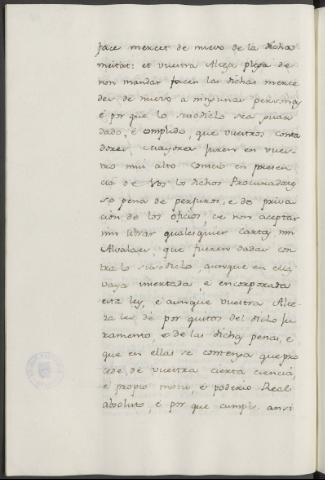 face mercet de nuevo de la dicha
meitat: et vuestra Alteza plega de
non mandar facer las dichas merce
des de nuevo a ningunas personas,
é por que lo susodicho sea guar
dado, é complido, que vuestros conta
dores, mayores juren en vues
tro mui alto consejo en presen
cia de Vos los dichos Procuradores
so pena de perjuros, é de priva
ción de los oficios, de non aceptar
nin librar qualesquier cartas, nin
Alvalaes, que fueren dadas con
tra lo susodicho, aunque en ellas
vaya inxertada, é encorporada
esta ley, é aunque vuestra Alte
za les dé por quitos del dicho ju
ramento, é de las dichas penas, é
que en ellas se contenga que pro
cede de vuestra cierta ciencia,
é propio motu, é poderio Real
absoluto, é por que cumple ansi